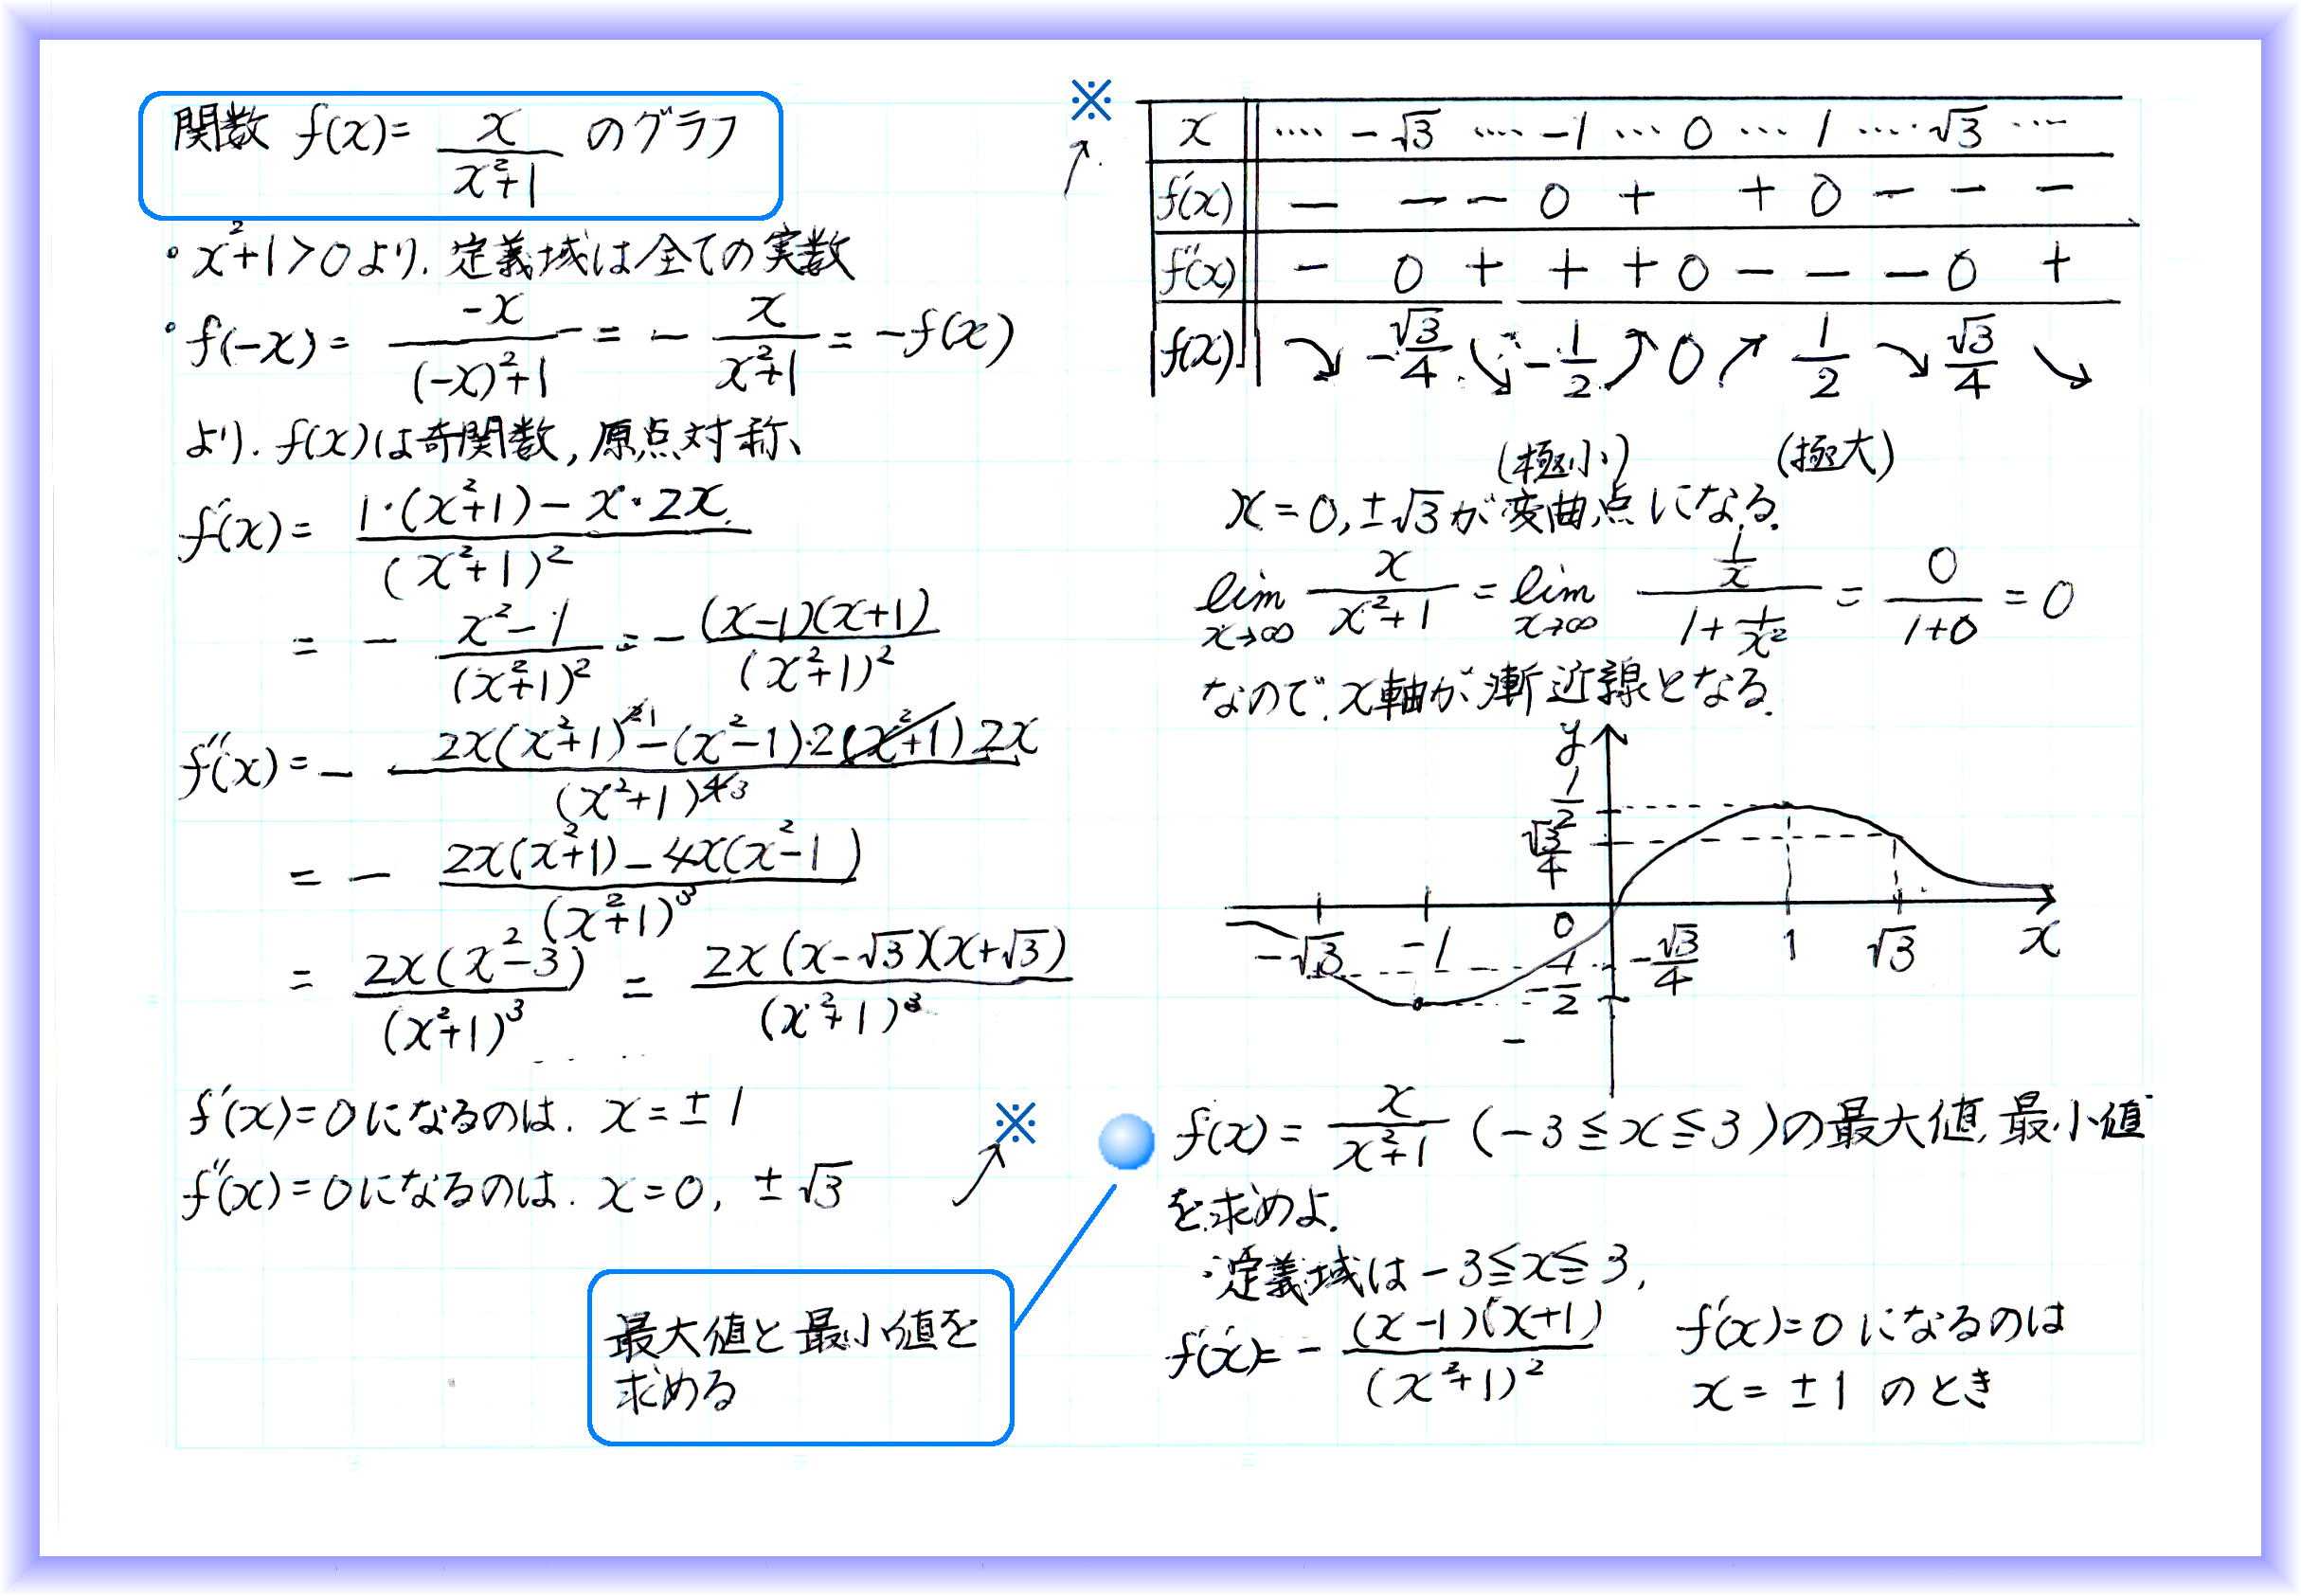 関数 f(x)= x/(x²+1) のグラフ
・x²+1>0より、定義域は全ての実数
・f(-x)= -x/((-x)²+1) = - x/(x²+1) = -f(x)
より、f(x)は奇関数, 原点対称、
f'(x)= (1·(x²+1)-x·2x)/(x²+1)²
= - (x²-1)/(x²+1)² = - (x-1)(x+1)/(x²+1)²
f''(x)= - (2x(x²+1)^{2 1}-(x²-1)·2(x²+1)2x)/(x²+1)^{4 3}
= - (2x(x²+1)-4x(x²-1))/(x²+1)³
= 2x(x²-3)/(x²+1)³ = 2x(x-√3)(x+√3)/(x²+1)³
f'(x)=0になるのは、x=±1
f''(x)=0になるのは、x=0, ±√3
※
最大値と最小値を
求める
※
x ‥‥ -√3 ‥‥ -1 … 0 … 1 ‥‥ √3 …
f'(x) - - - 0 + + 0 - - -
f''(x) - 0 + + + 0 - - - 0 +
f(x) ↘ -√3/4 ↘ -1/2 ↗ 0 ↗ 1/2 ↘ √3/4 ↘
(極小) (極大)
x=0,±√3が変曲点になる。
lim x→∞ x/(x²+1) = lim x→∞ (1/x)/(1+1/x²) = 0/(1+0) = 0
なので、x軸が漸近線となる。
y
1/2
√3/4
-√3 -1 0 -√3/4 1 √3 x
-1/2
f(x)= x/(x²+1) (-3≦x≦3)の最大値, 最小値
を求めよ.
・定義域は-3≦x≦3,
f'(x)= - (x-1)(x+1)/(x²+1)² f'(x)=0になるのは
x=±1 のとき